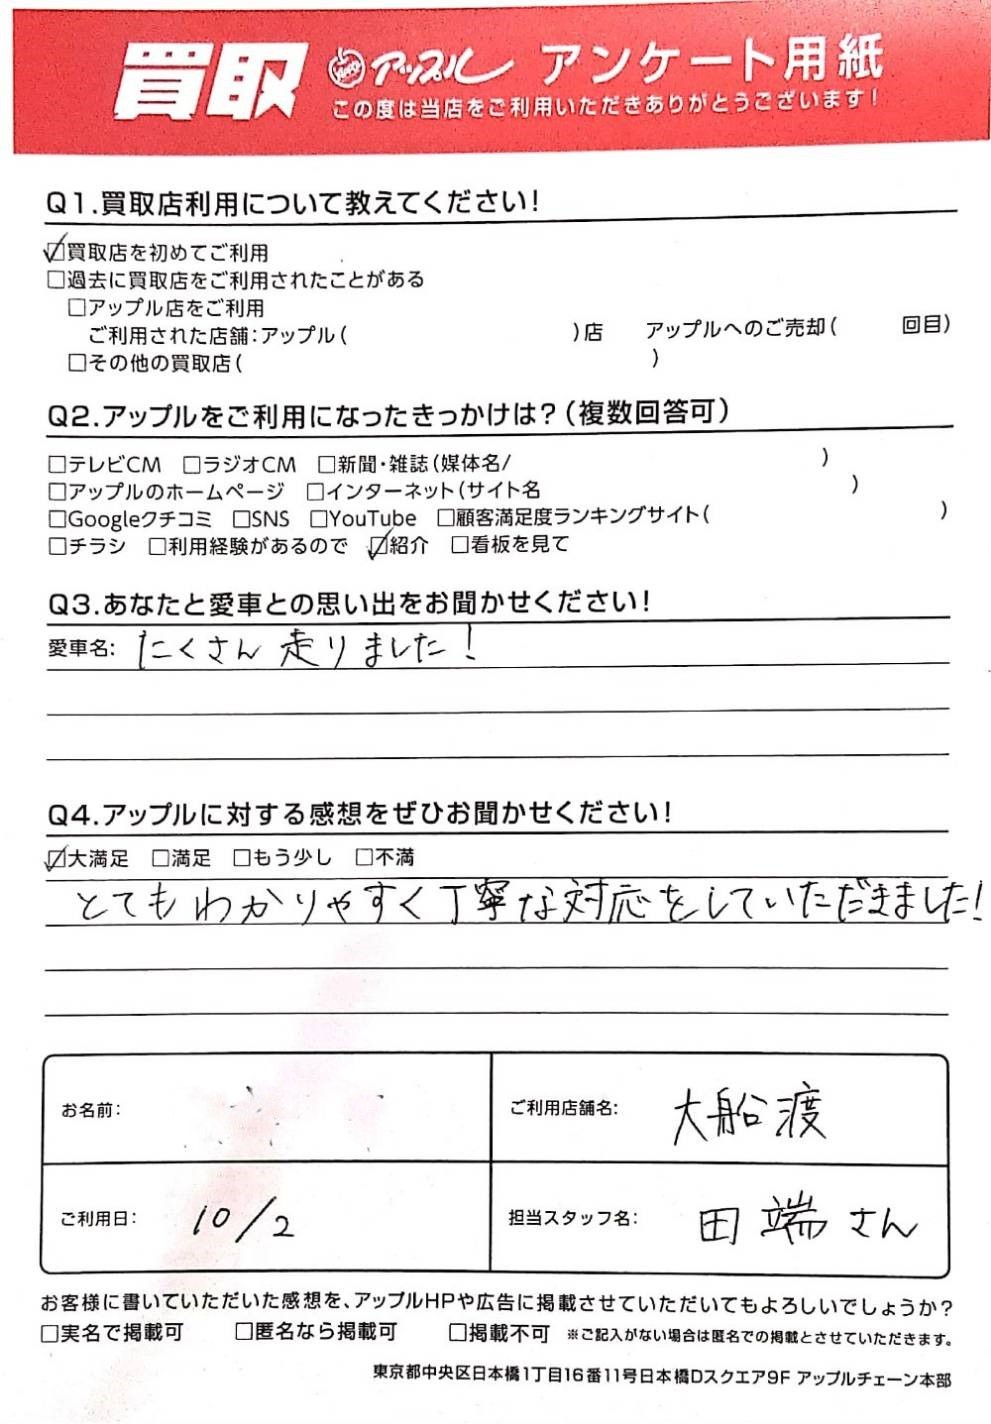 買取 Apple アップル アンケート用紙
この度は当店をご利用いただきありがとうございます!
Q1.買取店利用について教えてください!
☑買取店を初めてご利用
□過去に買取店をご利用されたことがある
□アップル店をご利用
ご利用された店舗:アップル( )店 アップルへのご売却( 回目)
□その他の買取店( )
Q2.アップルをご利用になったきっかけは?(複数回答可)
□テレビCM □ラジオCM □新聞・雑誌(媒体名/ )
□アップルのホームページ □インターネット(サイト名 )
□Googleクチコミ □SNS □YouTube □顧客満足度ランキングサイト( )
□チラシ □利用経験があるので ☑紹介 □看板を見て
Q3.あなたと愛車との思い出をお聞かせください!
愛車名: たくさん走りました!
Q4.アップルに対する感想をぜひお聞かせください!
☑大満足 □満足 □もう少し □不満
とてもわかりやすく丁寧な対応をしていただきました!
お名前:
ご利用店舗名: 大船渡
ご利用日: 10/2
担当スタッフ名: 田端さん
お客様に書いていただいた感想を、アップルHPや広告に掲載させていただいてもよろしいでしょうか?
□実名で掲載可 □匿名なら掲載可 □掲載不可 ※ご記入がない場合は匿名での掲載とさせていただきます。
東京都中央区日本橋1丁目16番11号日本橋Dスクエア9F アップルチェーン本部